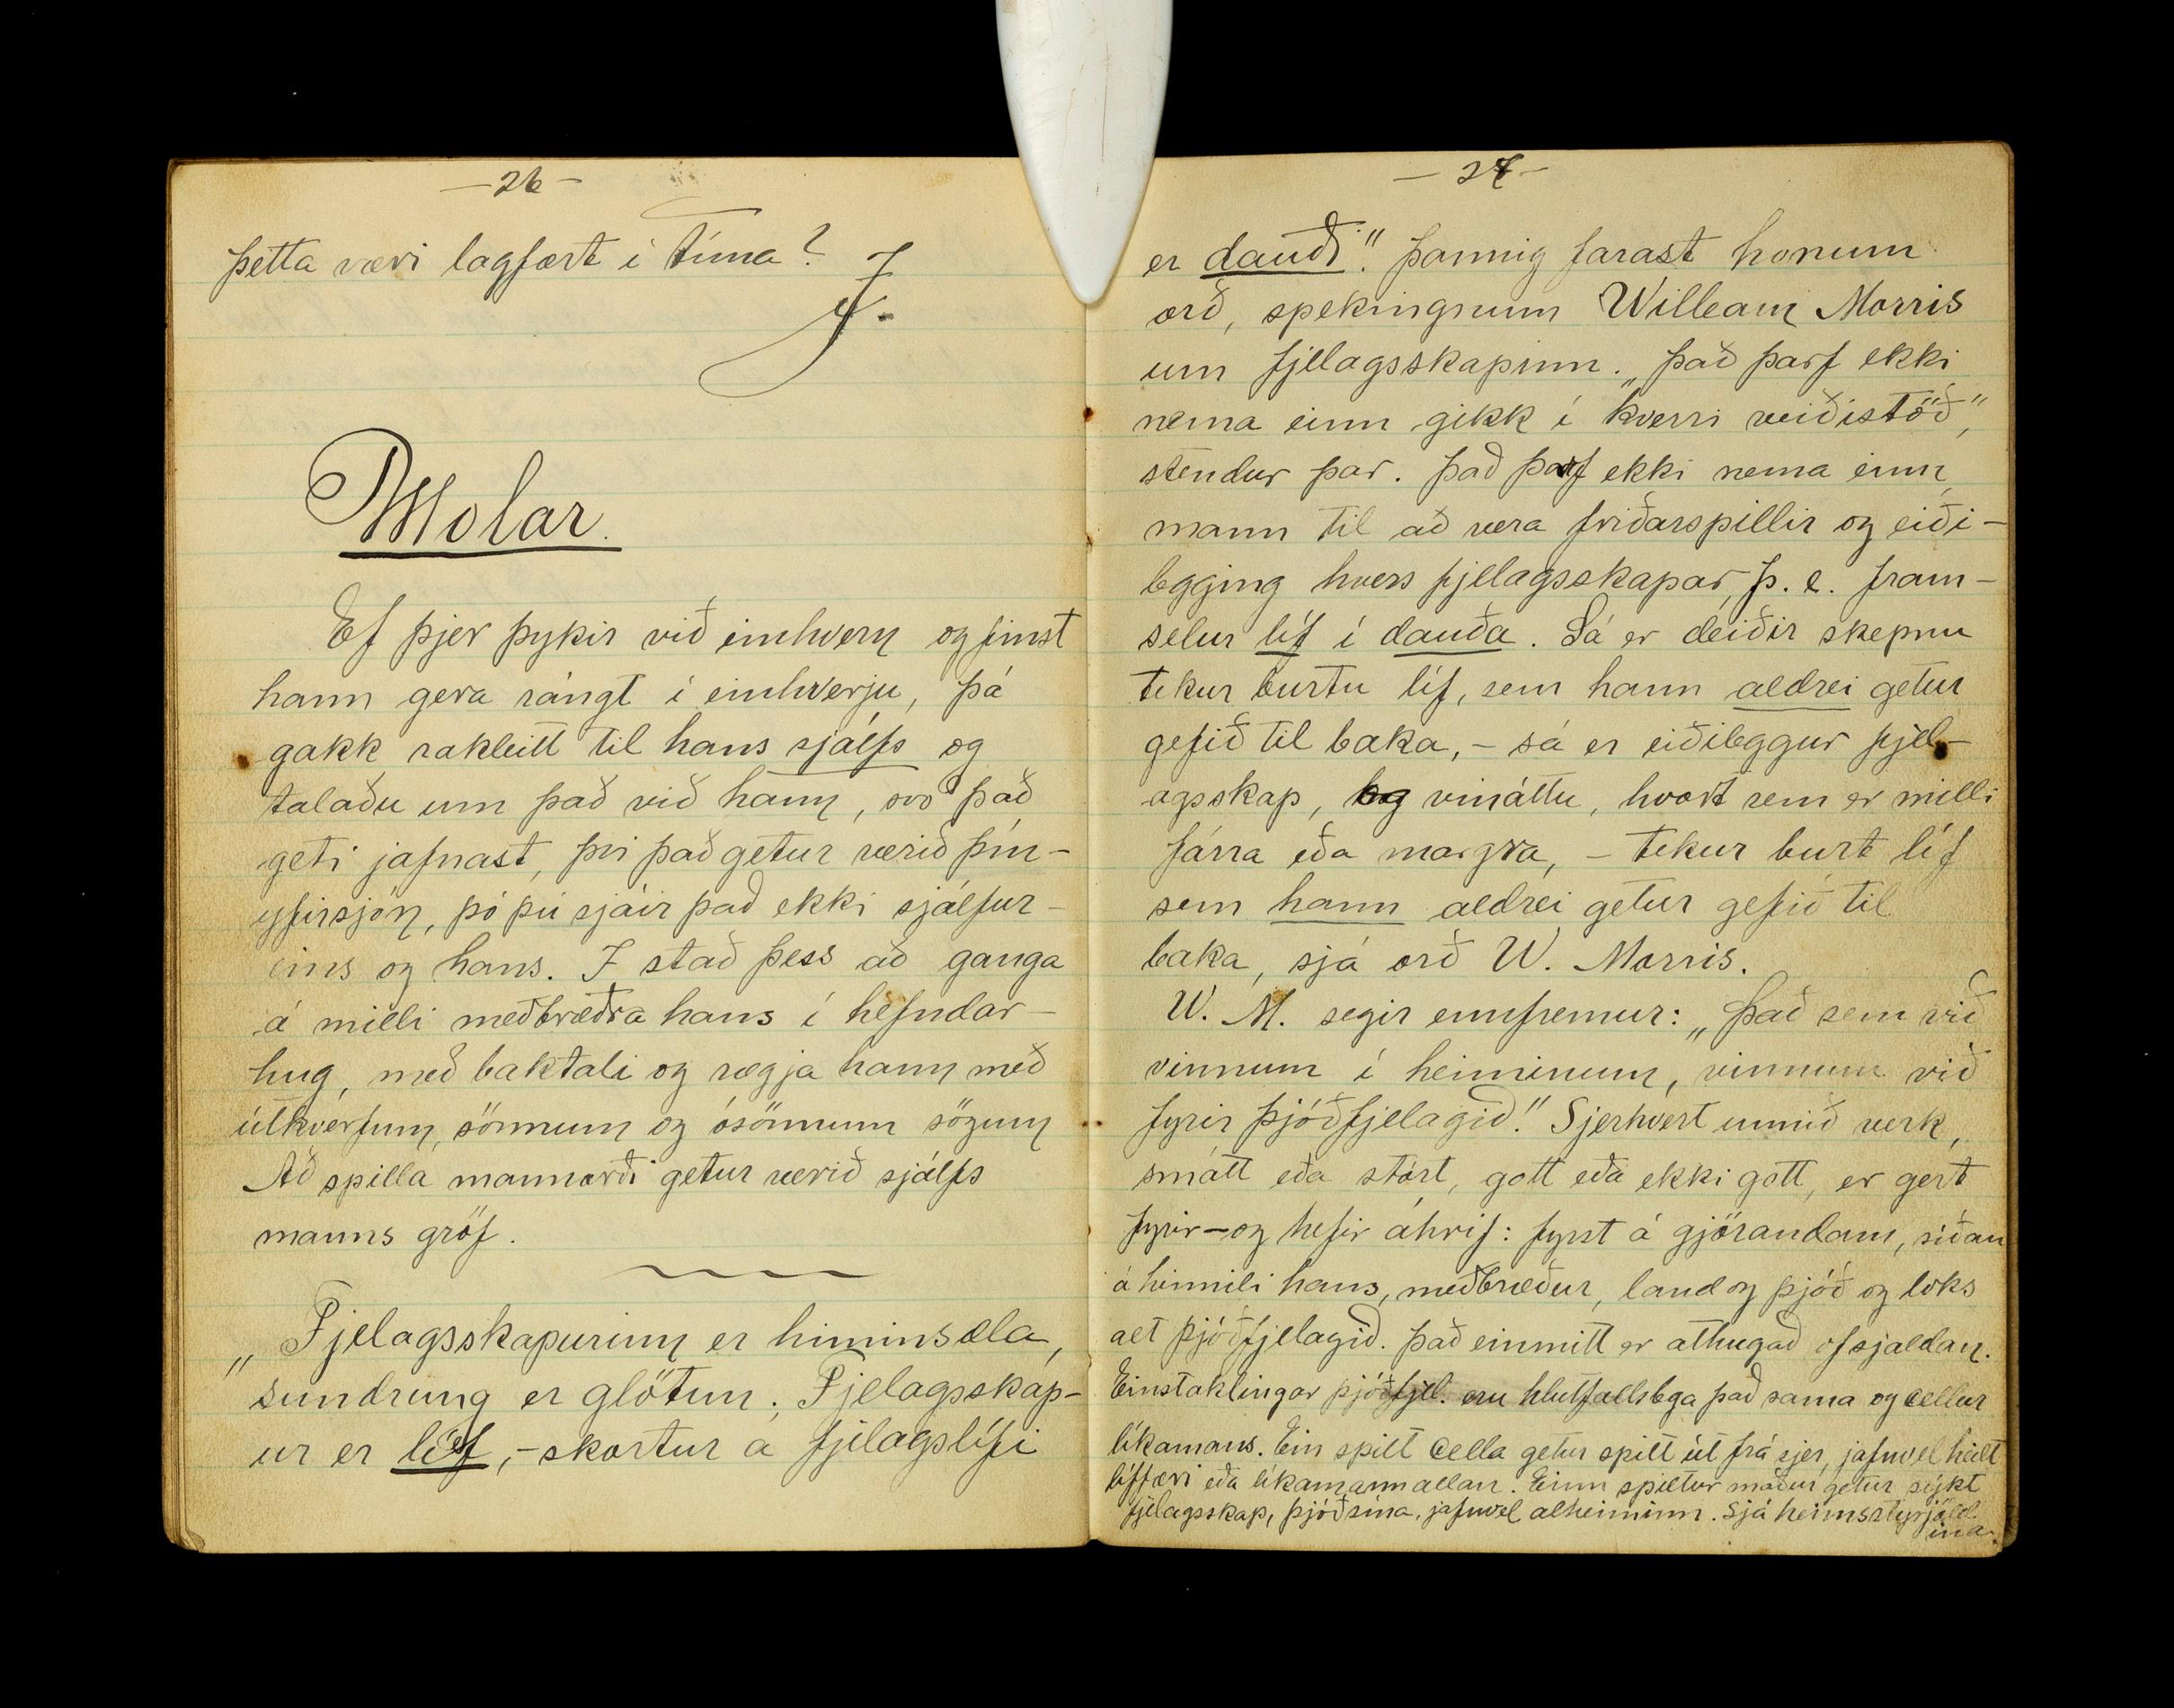 —26—
þetta væri lagfært í tíma?
J.
Molar.
Ef þjer þykir við einhvern og finst
hann gera rángt í einhverju, þá
gakk rakleitt til hans sjálfs og
talaðu um það við hann, svo það
geti jafnast, því það getur verið þín-
yfirsjón, þó þú sjáir það ekki sjálfur-
eins og hans. I stað þess að ganga
á milli meðbræðra hans í hefndar-
hug, með baktali og rægja hann með
útkverfum, sönnum og ósönnum sögum
Að spilla mannorði getur verið sjálfs
manns gröf.
„Fjelagsskapurinn er himinsæla,
sundrung er glötun; Fjelagsskap-
ur er líf,-skortur á fjelagslífi
—27—
er dauði." þannig farast honum
orð, spekingnum Willeam Morris
um fjelagsskapinn. „það þarf ekki
nema einn gikk í hverri veiðistöð",
stendur þar. það þarf ekki nema einn
mann til að vera friðarspillir og eiði-
legging hvers fjelagsskapar, þ. e. fram-
selur líf í dauða. Sá er deiðir skepnu
tekur burtu líf, sem hann aldrei getur
gefið til baka,- sá er eiðileggur fjel-
agsskap, og vináttu, hvort sem er milli
fárra eða margra, - tekur burt líf
sem hann aldrei getur gefið til
baka, sjá orð W. Morris.
W. M. segir ennfremur: „það sem við
vinnum í heiminum, vinnum við
fyrir þjóðfjelagið." Sjerhvert unnið verk,
smátt eða stórt, gott eða ekki gott, er gert
fyrir-og hefir áhrif: fyrst á gjörandann, síðan
á heimili hans, meðbræður, land og þjóð og loks
alt þjóðfjelagið. það einmitt er athugað of sjaldan.
Einstaklingar þjóðfjel. eru hlutfallslega það sama og cellur
líkamans. Ein spilt cella getur spilt út frá sjer, jafnvel heilt
líffæri eða líkamann allan. Einn spiltur maður getur sýkt
fjelagsskap, þjóð sína, jafnvel alheiminn. Sjá heimsstyrjöld
ina.